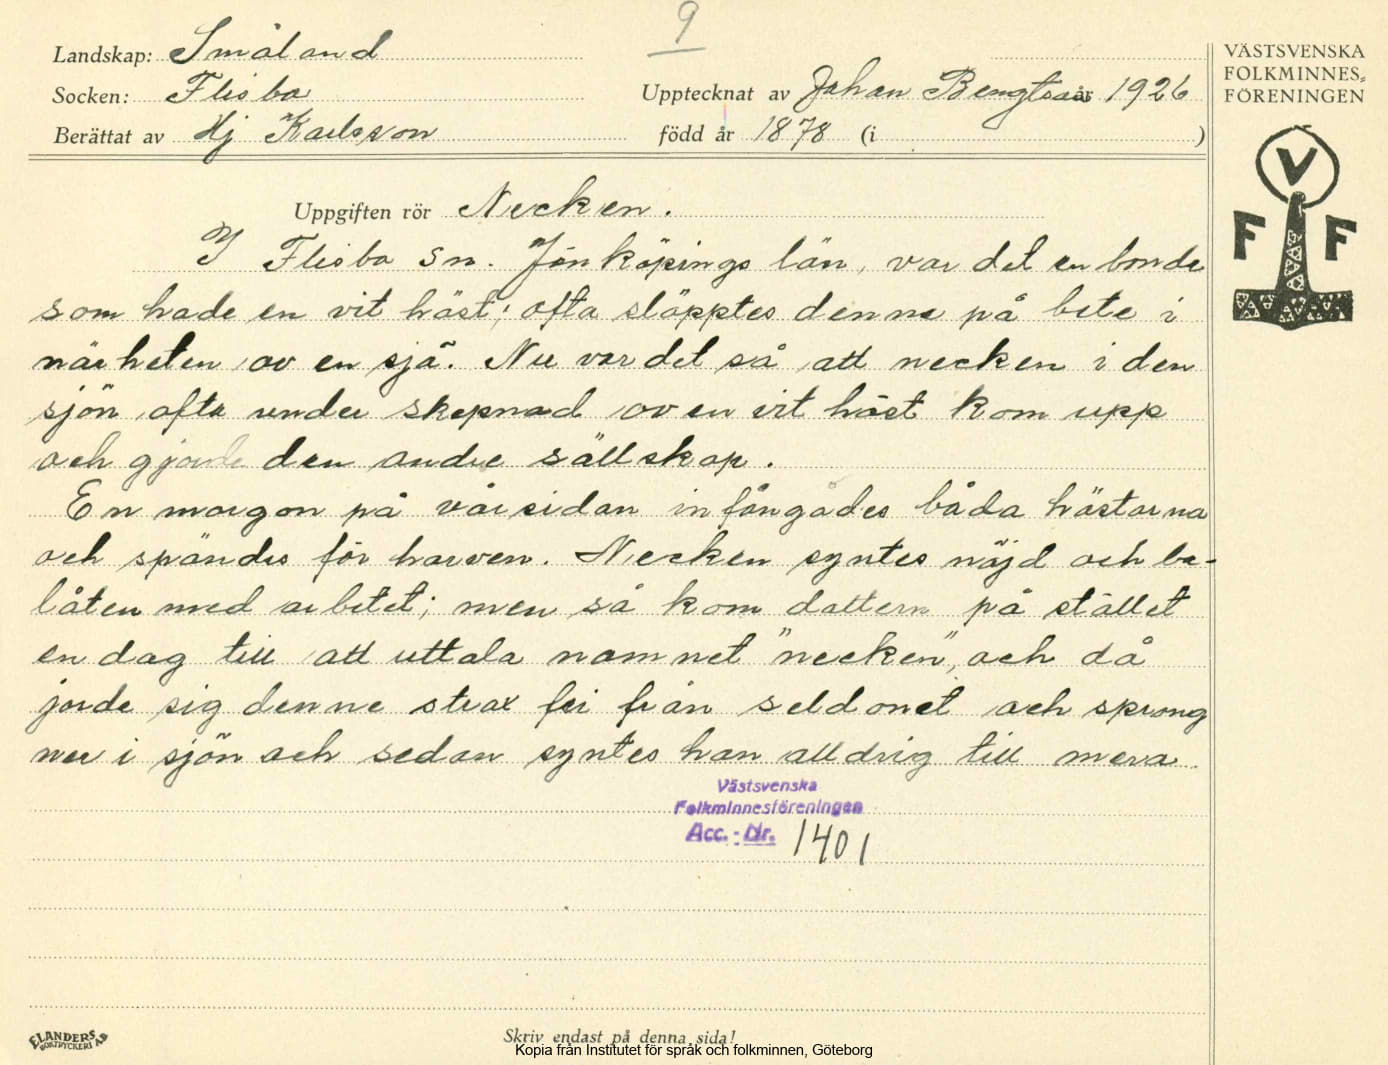 9
Landskap: Småland
Socken: Flisba
Upptecknat av Johan Bengtsson år 1926
Berättat av Hj Karlsson
född år 1878 (i )
VÄSTSVENSKA
FOLKMINNES-
FÖRENINGEN
V
F F
Uppgiften rör Necken.
I Flisba sn. Jönköpings län, var det en bonde
som hade en vit häst; ofta släpptes denna på bete i
närheten av en sjö. Nu var det så att necken i den
sjön ofta under skepnad av en vit häst kom upp
och gjorde den andre sällskap.
En morgon på vårsidan infångades båda hästarna
och spändes för harven. Necken syntes nöjd och be-
låten med arbetet; men så kom dottern på stället
en dag till att uttala namnet "necken", och då
jorde sig denne strax fri från seldonet och sprong
ner i sjön och sedan syntes han alldrig till mera.
Västsvenska
Folkminnesföreningen
Acc.-Nr. 1401
ELANDERS
BOKTRYCKERI AB
Skriv endast på denna sida!
Kopia från Institutet för språk och folkminnen, Göteborg